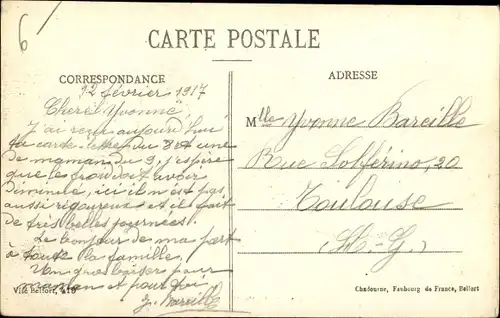 6
CARTE POSTALE
CORRESPONDANCE
ADRESSE
12 février 1917
Chère Yvonne
J'ai reçu aujourd'hui
ta carte-lettre du 8 et une
de maman du 9, j'espère
que le froid doit avoir
diminué, ici il n'est pas
aussi rigoureux et il fait
de très belles journées.
Le bonjour de ma part
à toute la famille,
Un gros baiser pour
maman et pour toi
J. Bareille
Mlle Yvonne Bareille
Rue Solférino, 20
Toulouse
(H-G.)
Vité Belfort, 418
Chadourne, Faubourg de France, Belfort